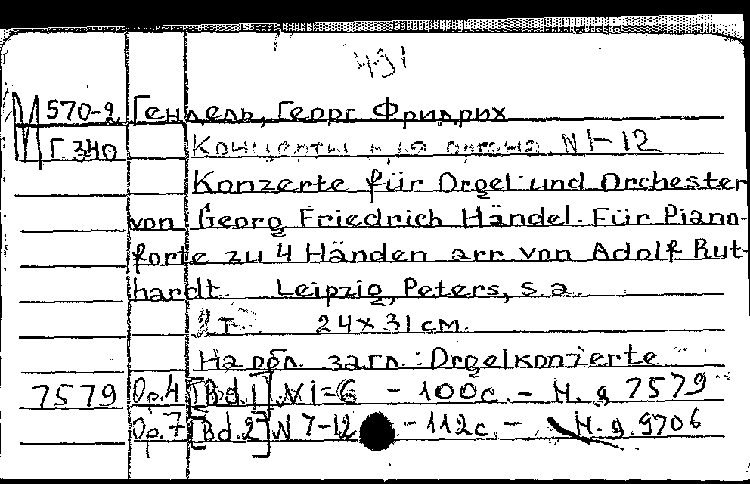 491
М 570-2 Гендель, Георг Фридрих
Г 340 Концерты для органа N 1-12
Konzerte für Orgel und Orchester
von Georg Friedrich Händel. Für Piano-
forte zu 4 Händen arr von Adolf Rut-
hardt. Leipzig, Peters, s.a.
2 т. 24x31 см.
На обл. загл.: Orgelkonzerte
7579 Op.4 [Bd.1] N 1=6 - 100c. - Н.д. 7579
Op.7 [Bd.2] N 7-12 - 112c. - Н.д. 9706